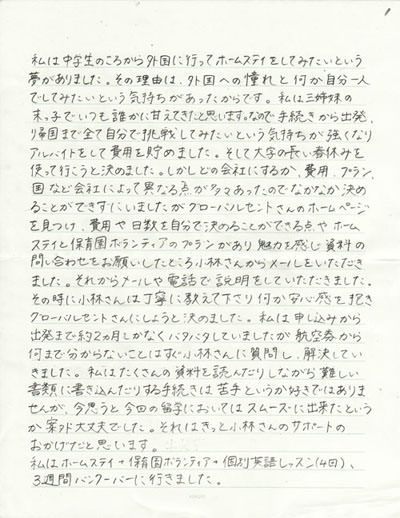 私は中学生のころから外国に行ってホームステイをしてみたいという
夢がありました。その理由は、外国への憧れと何か自分一人
でしてみたいという気持ちがあったからです。私は三姉妹の
末っ子でいつも誰かに甘えてきたと思います。なので手続きから出発、
帰国まで全て自分で挑戦してみたいという気持ちが強くなり
アルバイトをして費用を貯めました。そして大学の長い春休みを
使って行こうと決めました。しかしどの会社にするか、費用、プラン、
国など会社によって異なる点が多々あったのでなかなか決め
ることができずにいましたがグローバルセントさんのホームページ
を見つけ、費用や日数を自分で決めることができる点やホーム
ステイと保育園ボランティアのプランがあり魅力を感じ資料の
問い合わせをお願いしたところ小林さんからメールをいただき
ました。それからメールや電話で説明をしていただきました。
その時に小林さんは丁寧に教えて下さり何か安心感を抱き
グローバルセントさんにしようと決めました。私は申し込みから
出発まで約2カ月しかなくバタバタしていましたが航空券から
何まで分からないことはすぐ小林さんに質問し、解決してい
きました。私はたくさんの資料を読んだりしながら難しい
書類に書き込んだりする手続きは苦手というか好きではありま
せんが、今思うと今回の留学においてはスムーズに出来たという
か案外大丈夫でした。それはきっと小林さんのサポートの
おかげだと思います。
私はホームステイ+保育園ボランティア+個別英語レッスン(4日)、
3週間バンクーバーに行きました。